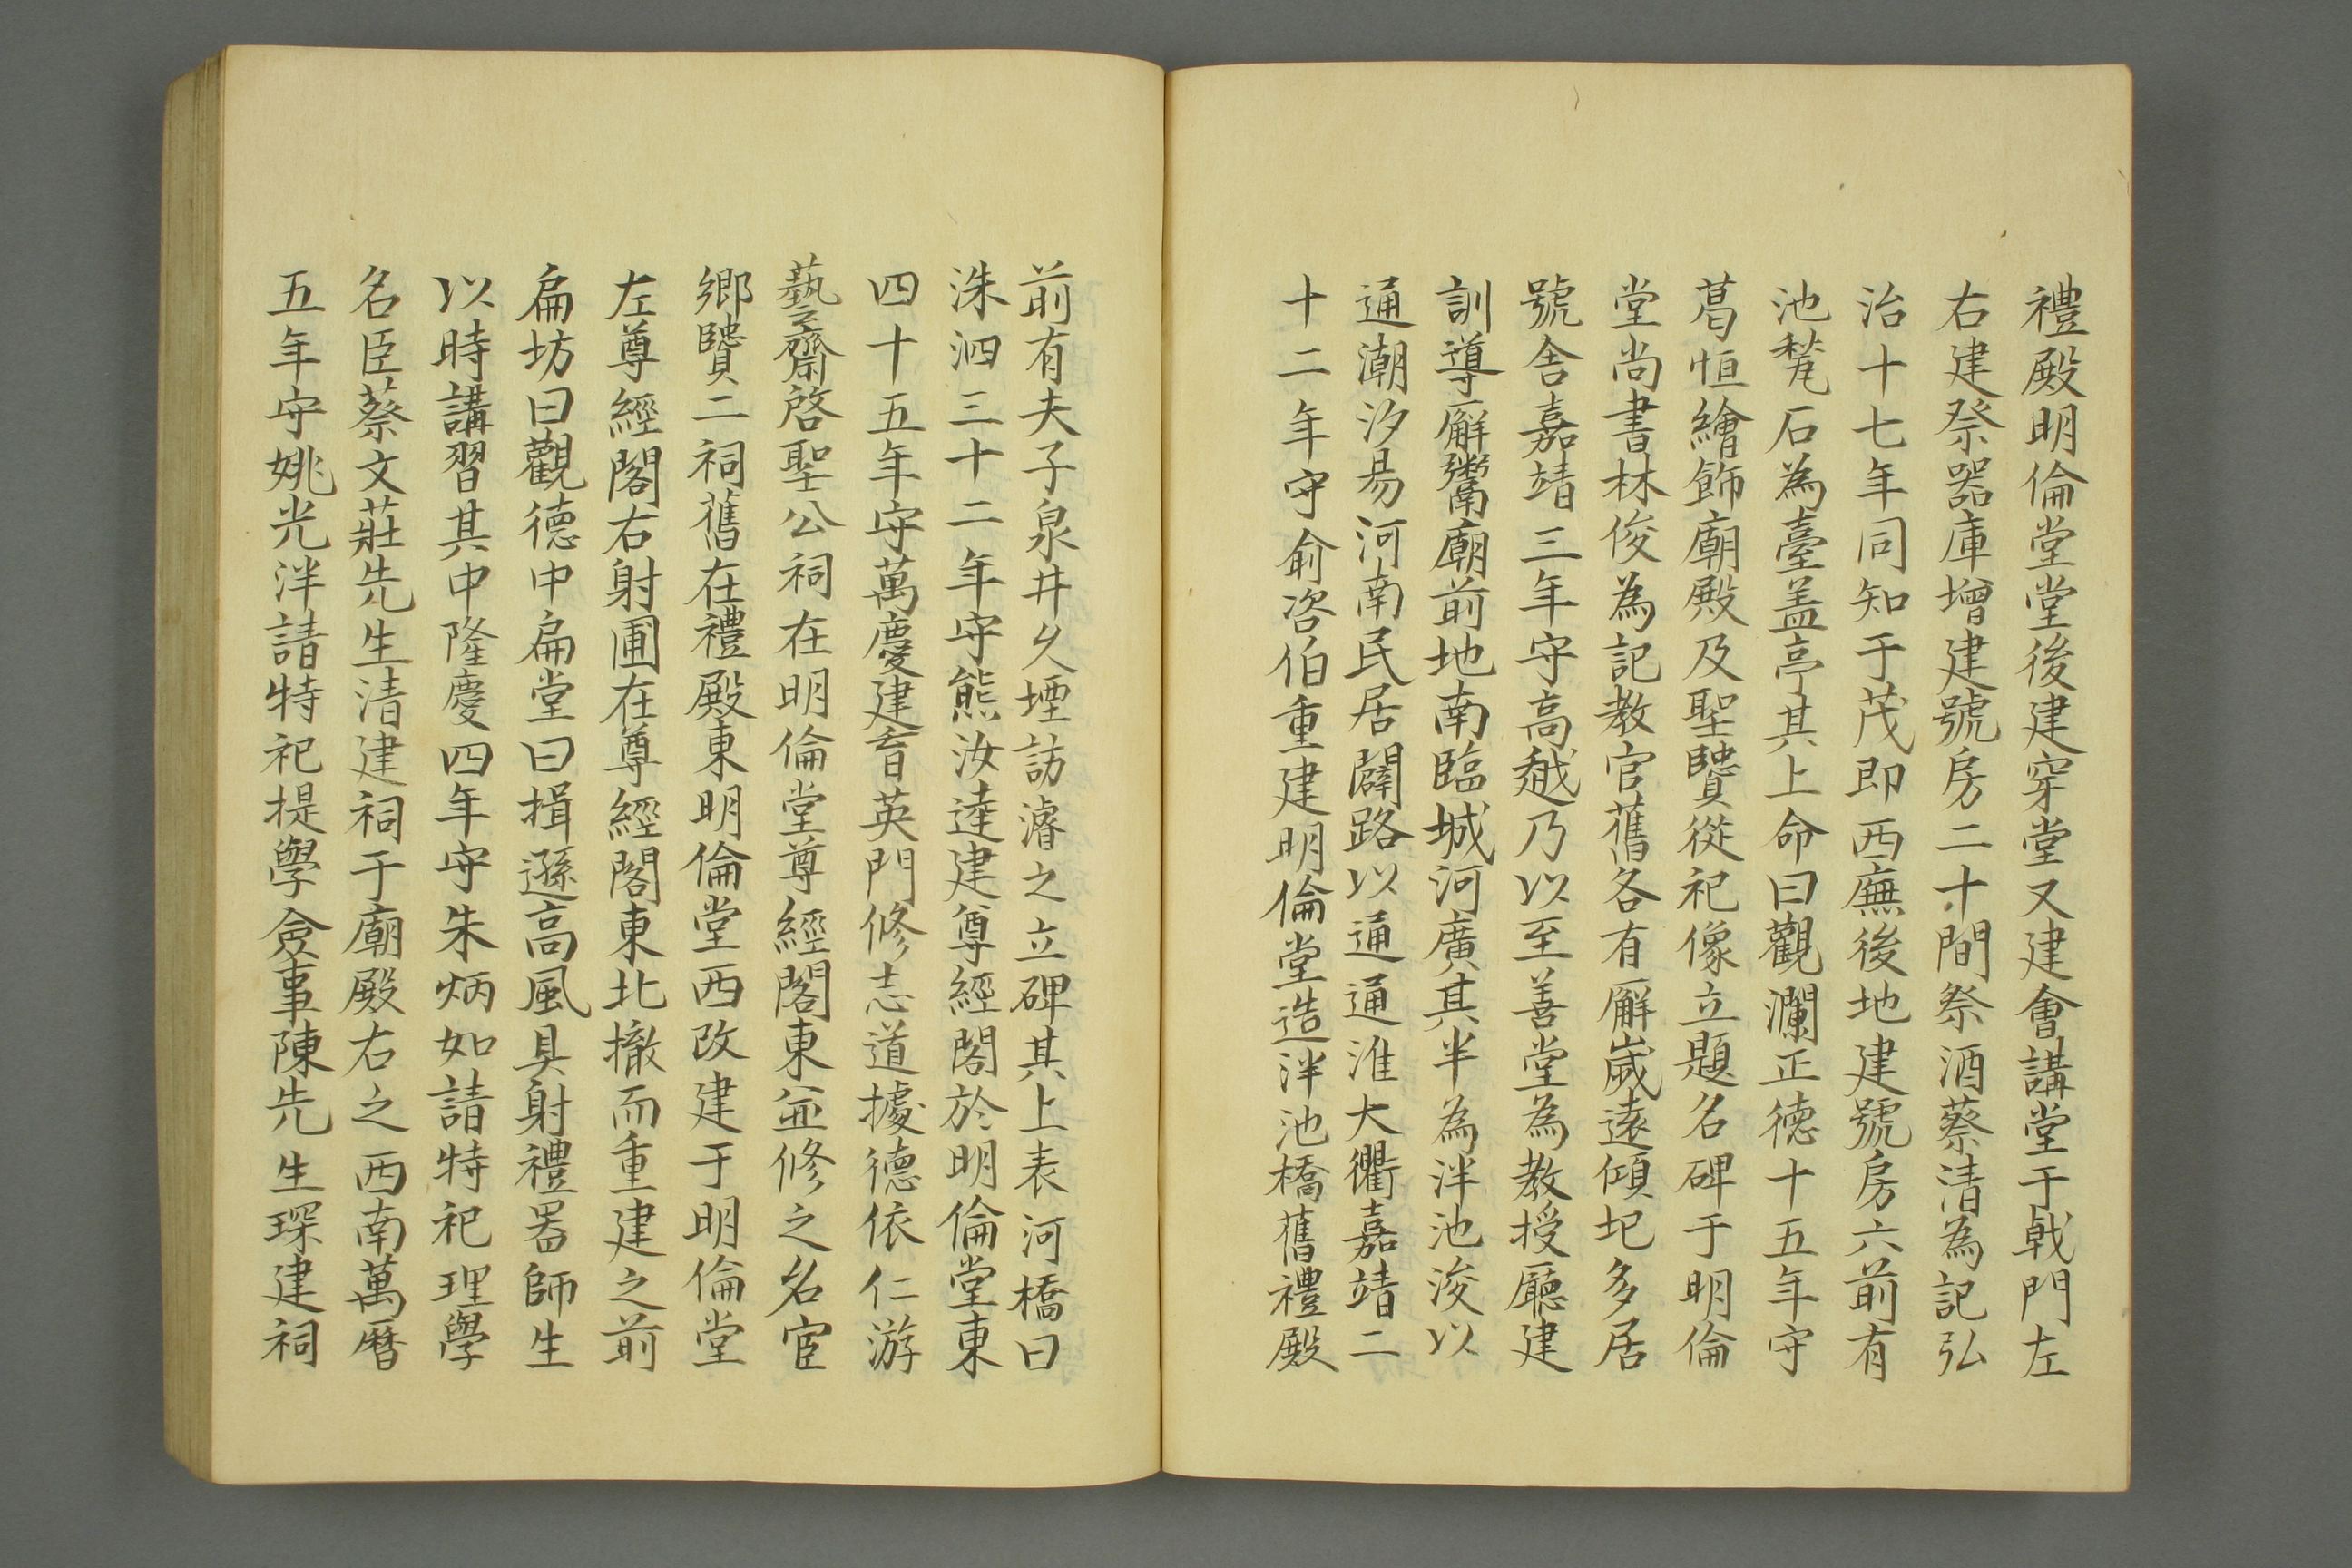 禮殿明倫堂堂後建穿堂又建會講堂于戟門左
右建祭器庫增建號房二十間祭酒蔡清為記弘
治十七年同知于茂即西廡後地建號房六前有
池甃石為臺盖亭其上命曰觀瀾正德十五年守
葛恒繪飾廟殿及聖賢從祀像立題名碑于明倫
堂尚書林俊為記教官舊各有廨歲遠傾圮多居
號舍嘉靖三年守高越乃以至善堂為教授廳建
訓導廨鬻廟前地南臨城河廣其半為泮池浚以
通潮汐易河南民居闢路以通通淮大衢嘉靖二
十二年守俞咨伯重建明倫堂造泮池橋舊禮殿
前有夫子泉井久堙訪濬之立碑其上表河橋曰
洙泗三十二年守熊汝達建尊經閣於明倫堂東
四十五年守萬慶建育英門修志道據德依仁游
藝齋啓聖公祠在明倫堂尊經閣東並修之名宦
鄉賢二祠舊在禮殿東明倫堂西改建于明倫堂
左尊經閣右射圃在尊經閣東北撤而重建之前
扁坊曰觀德中扁堂曰揖遜高風具射禮噐師生
以時講習其中隆慶四年守朱炳如請特祀理學
名臣蔡文莊先生清建祠于廟殿右之西南萬曆
五年守姚光泮請特祀提學僉事陳先生琛建祠